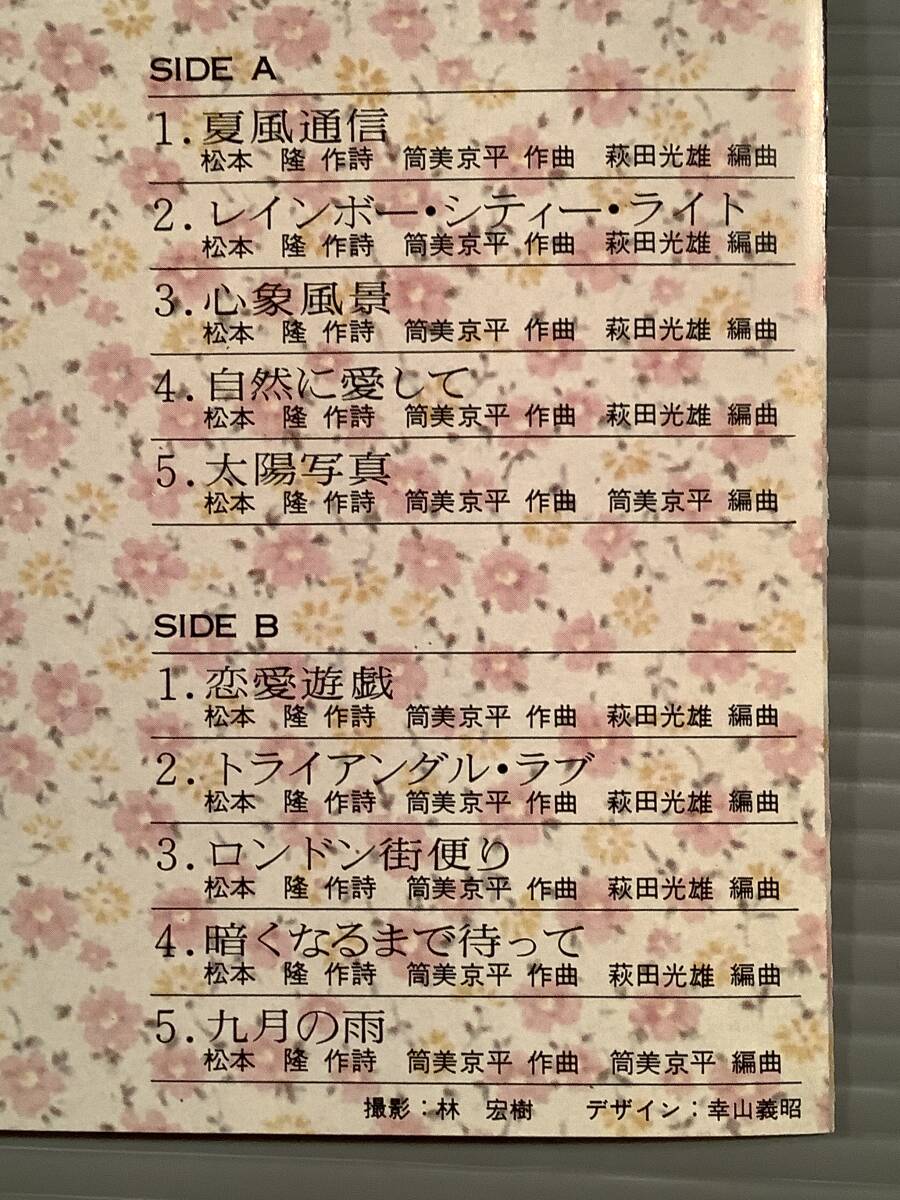 SIDE A
1.夏風通信
松本 隆 作詩 筒美京平 作曲 萩田光雄 編曲
2.レインボー・シティー・ライト
松本 隆 作詩 筒美京平 作曲 萩田光雄 編曲
3.心象風景
松本 隆 作詩 筒美京平 作曲 萩田光雄 編曲
4.自然に愛して
松本 隆 作詩 筒美京平 作曲 萩田光雄 編曲
5.太陽写真
松本 隆 作詩 筒美京平 作曲 筒美京平 編曲
SIDE B
1.恋愛遊戯
松本 隆 作詩 筒美京平 作曲 萩田光雄 編曲
2.トライアングル・ラブ
松本 隆 作詩 筒美京平 作曲 萩田光雄 編曲
3.ロンドン街便り
松本 隆 作詩 筒美京平 作曲 萩田光雄 編曲
4.暗くなるまで待って
松本 隆 作詩 筒美京平 作曲 萩田光雄 編曲
5.九月の雨
松本 隆 作詩 筒美京平 作曲 筒美京平 編曲
撮影：林 宏樹 デザイン：幸山義昭